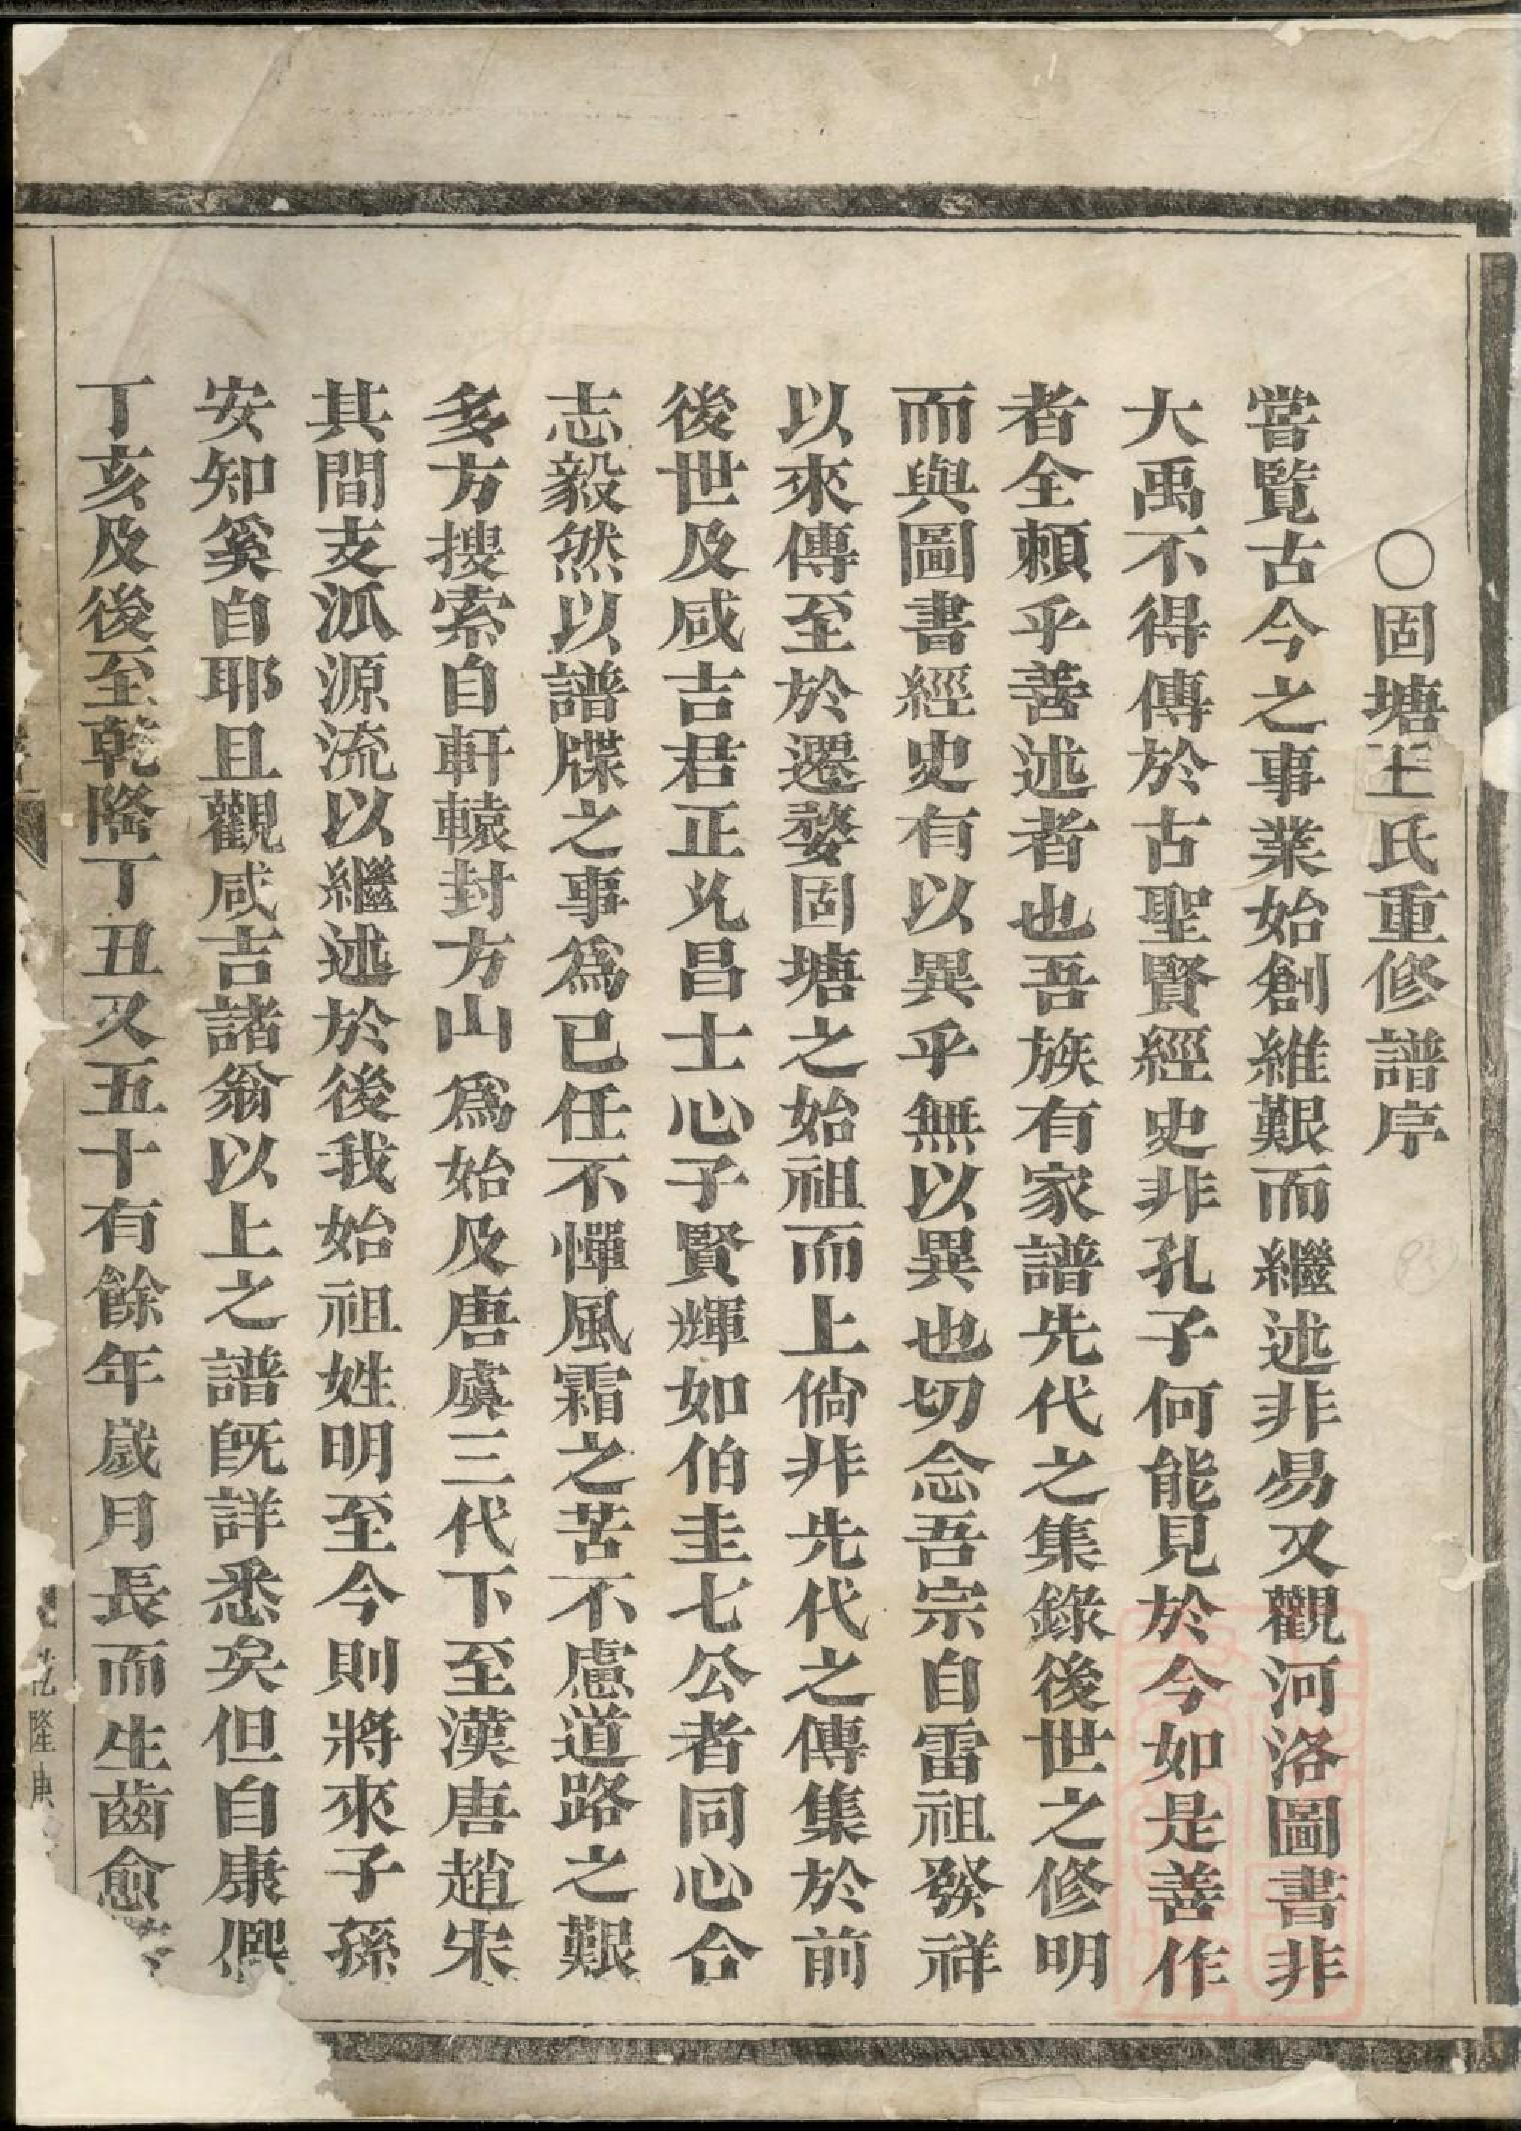 ○固塘王氏重修譜序
嘗覽古今之事業始創維艱而繼述非易又觀河洛圖書非
大禹不得傳於古聖賢經史非孔子何能見於今如是善作
者全賴乎善述者也吾族有家譜先代之集錄後世之修明
而與圖書經史有以異乎無以異也切念吾宗自雷祖發祥
以來傳至於遷婺固塘之始祖而上倘非先代之傳集於前
後世及咸吉君正允昌士心子賢輝如伯圭七公者同心合
志毅然以譜牒之事爲已任不憚風霜之苦不慮道路之艱
多方搜索自軒轅封方山爲始及唐虞三代下至漢唐趙宋
其間支派源流以繼述於後我始祖姓明至今則將來子孫
安知奚自耶且觀咸吉諸翁以上之譜旣詳悉矣但自康熙
丁亥及後至乾隆丁丑又五十有餘年歲月長而生齒愈
隆庚